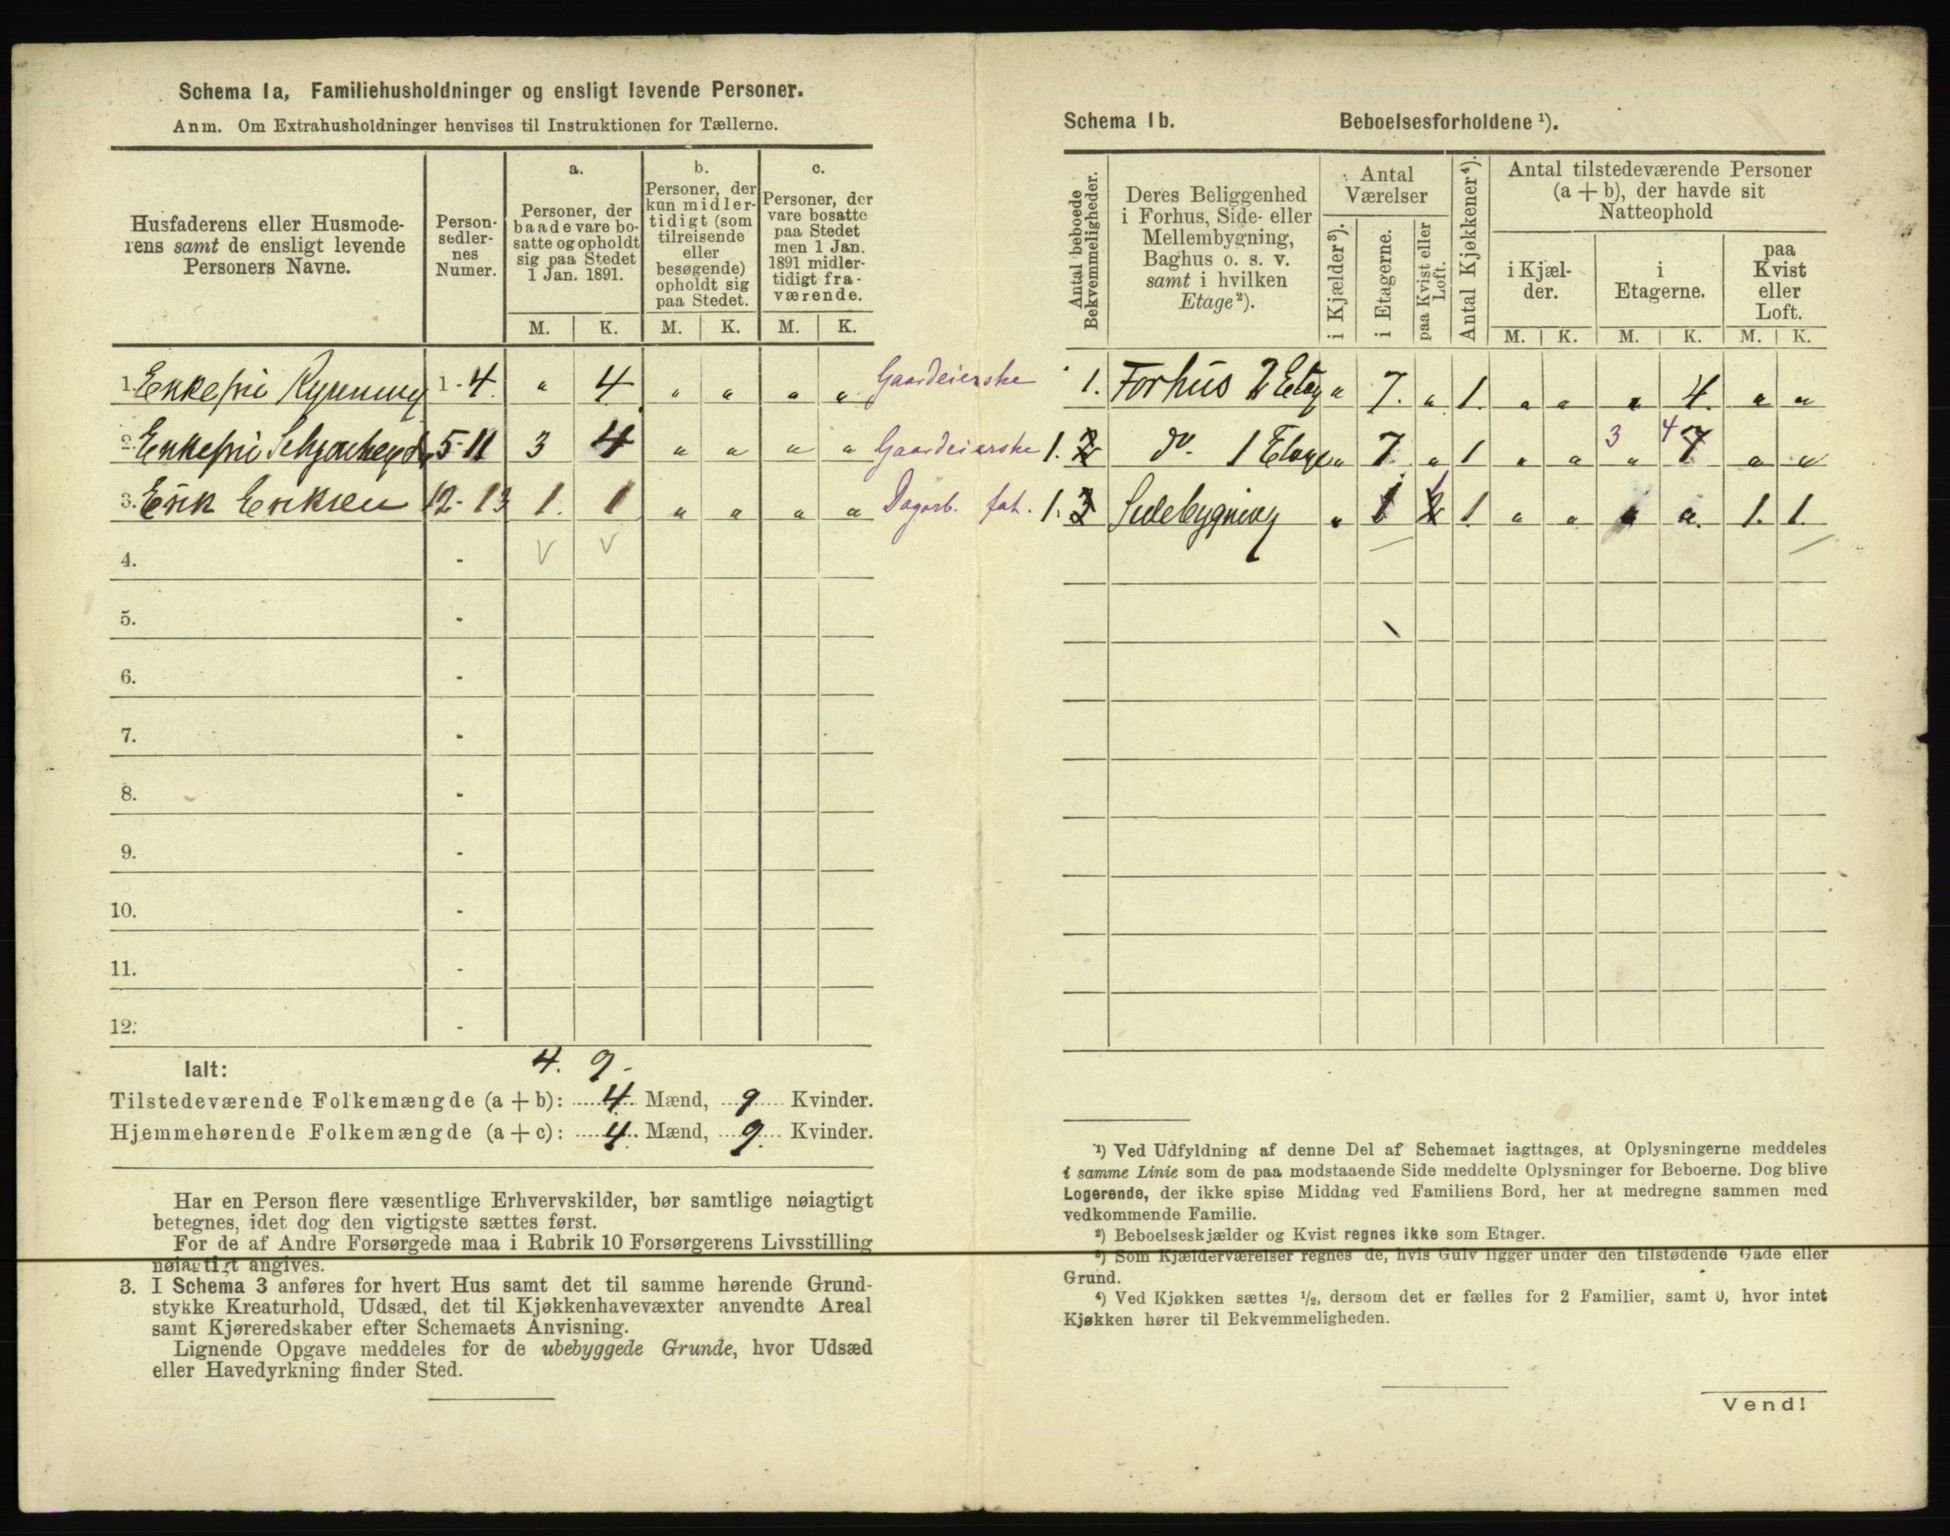 Schema 1a, Familiehusholdninger og ensligt levende Personer.
Anm. Om Extrahusholdninger henvises til Instruktionen for Tællerne.
Husfaderens eller Husmode-
rens samt de ensligt levende
Personers Navne.
Person-
sedler-
nes
Numer.
a.
Personer, der
baade vare bo-
satte og opholdt
sig paa Stedet
1 Jan. 1891.
b.
Personer, der
kun midler-
tidigt (som
tilreisende
eller
besøgende)
opholdt sig
paa Stedet.
c.
Personer, der
vare bosatte
paa Stedet
men 1 Jan.
1891 midler-
tidigt fra-
værende.
M. K. M. K. M. K.
1. Enkefru 1-4. " 4. " " " " Gaardeierske
2. Enkefru 5-11 3 4 " " " " Gaardeierske
3. Erik Eriksen 12-13 1. 1 " " " " Dagarb. fat.
4. - V V
5. -
6. -
7. -
8. -
9. -
10. -
11. -
12. -
4. 9.
Ialt:
Tilstedeværende Folkemængde (a + b): 4 Mænd, 9 Kvinder.
Hjemmehørende Folkemængde (a + c): 4 Mænd, 9. Kvinder.
Har en Person flere væsentlige Erhvervskilder, bør samtlige nøiagtigt
betegnes, idet dog den vigtigste sættes først.
For de af Andre Forsørgede maa i Rubrik 10 Forsørgerens Livsstilling
nøiagtigt angives.
3. I Schema 3 anføres for hvert Hus samt det til samme hørende Grund-
stykke Kreaturhold, Udsæd, det til Kjøkkenhavevæxter anvendte Areal
samt Kjøreredskaber efter Schemaets Anvisning.
Lignende Opgave meddeles for de ubebyggede Grunde, hvor Udsæd
eller Havedyrkning finder Sted.
Schema 1b. Beboelsesforholdene ¹).
Antal beboede
Bekvemmeligheder.
Deres Beliggenhed
i Forhus, Side- eller
Mellembygning,
Baghus o. s. v.
samt i hvilken
Etage²).
Antal
Værelser
i Kjælder³).
i Etagerne.
paa Kvist eller
Loft.
Antal Kjøkkener⁴).
Antal tilstedeværende Personer
(a + b), der havde sit
Natteophold
i Kjæl-
der.
i
Etagerne.
paa
Kvist
eller
Loft.
M. K. M. K. M. K.
1. Forhus 2 Etag " 7. " 1. " " " 4. " "
1. 2 do. 1 Etage " 7. " 1 " " 3 " 4 7 " "
1. 3 Sidebygning " 1 1 2 1. " " " 1. 1.
¹) Ved Udfyldning af denne Del af Schemaet iagttages, at Oplysningerne meddeles
i samme Linie som de paa modstaaende Side meddelte Oplysninger for Beboerne. Dog blive
Logerende, der ikke spise Middag ved Familiens Bord, her at medregne sammen med
vedkommende Familie.
²) Beboelseskjælder og Kvist regnes ikke som Etager.
³) Som Kjælderværelser regnes de, hvis Gulv ligger under den tilstødende Gade eller
Grund.
⁴) Ved Kjøkken sættes ½, dersom det er fælles for 2 Familier, samt 0, hvor intet
Kjøkken hører til Bekvemmeligheden.
Vend!